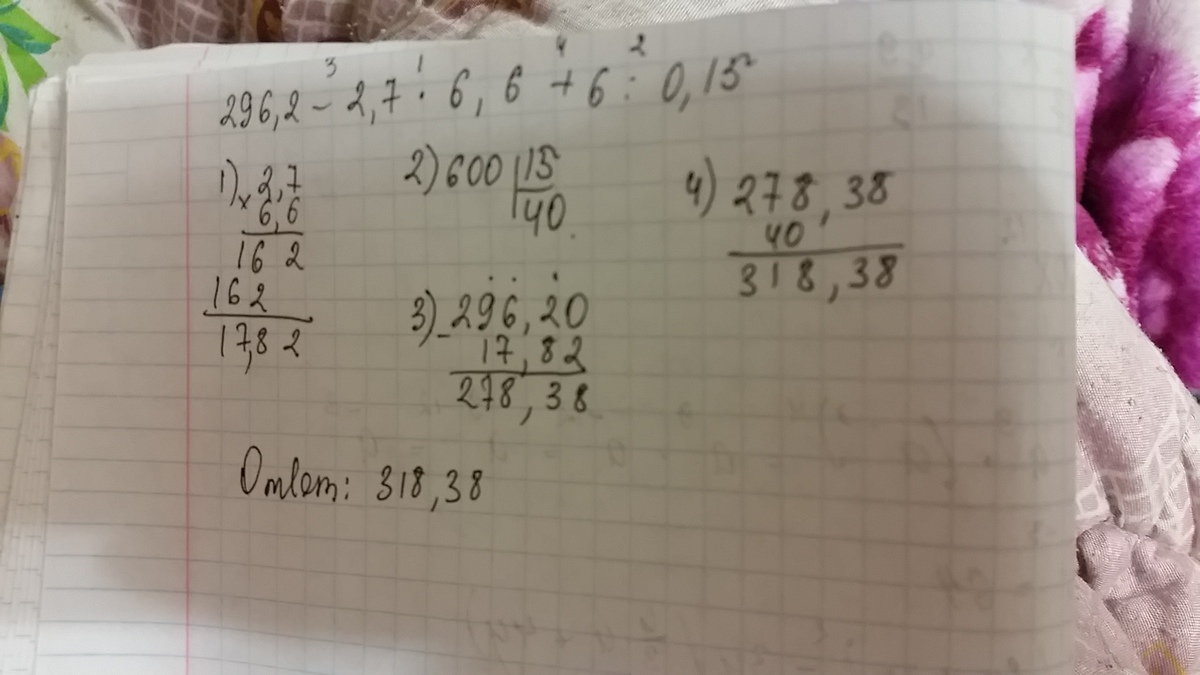 3 1 4 2
296,2 - 2,7 · 6,6 + 6 : 0,15
1) × 2,7
6,6
162
162
17,82
2) 600 | 15
40
3) - 296,20
17,82
278,38
4) 278,38
40
318,38
Ответ: 318,38